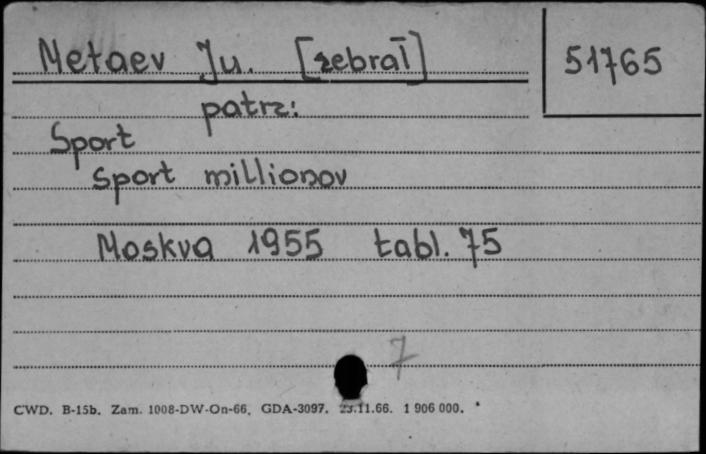 Metaev Ju. [zebrał] 51765
patrz:
Sport
Sport millionov
Moskva 1955 tabl. 75
7
CWD. B-15b. Zam. 1008-DW-On-66. GDA-3097. 23.11.66. 1 906 000.